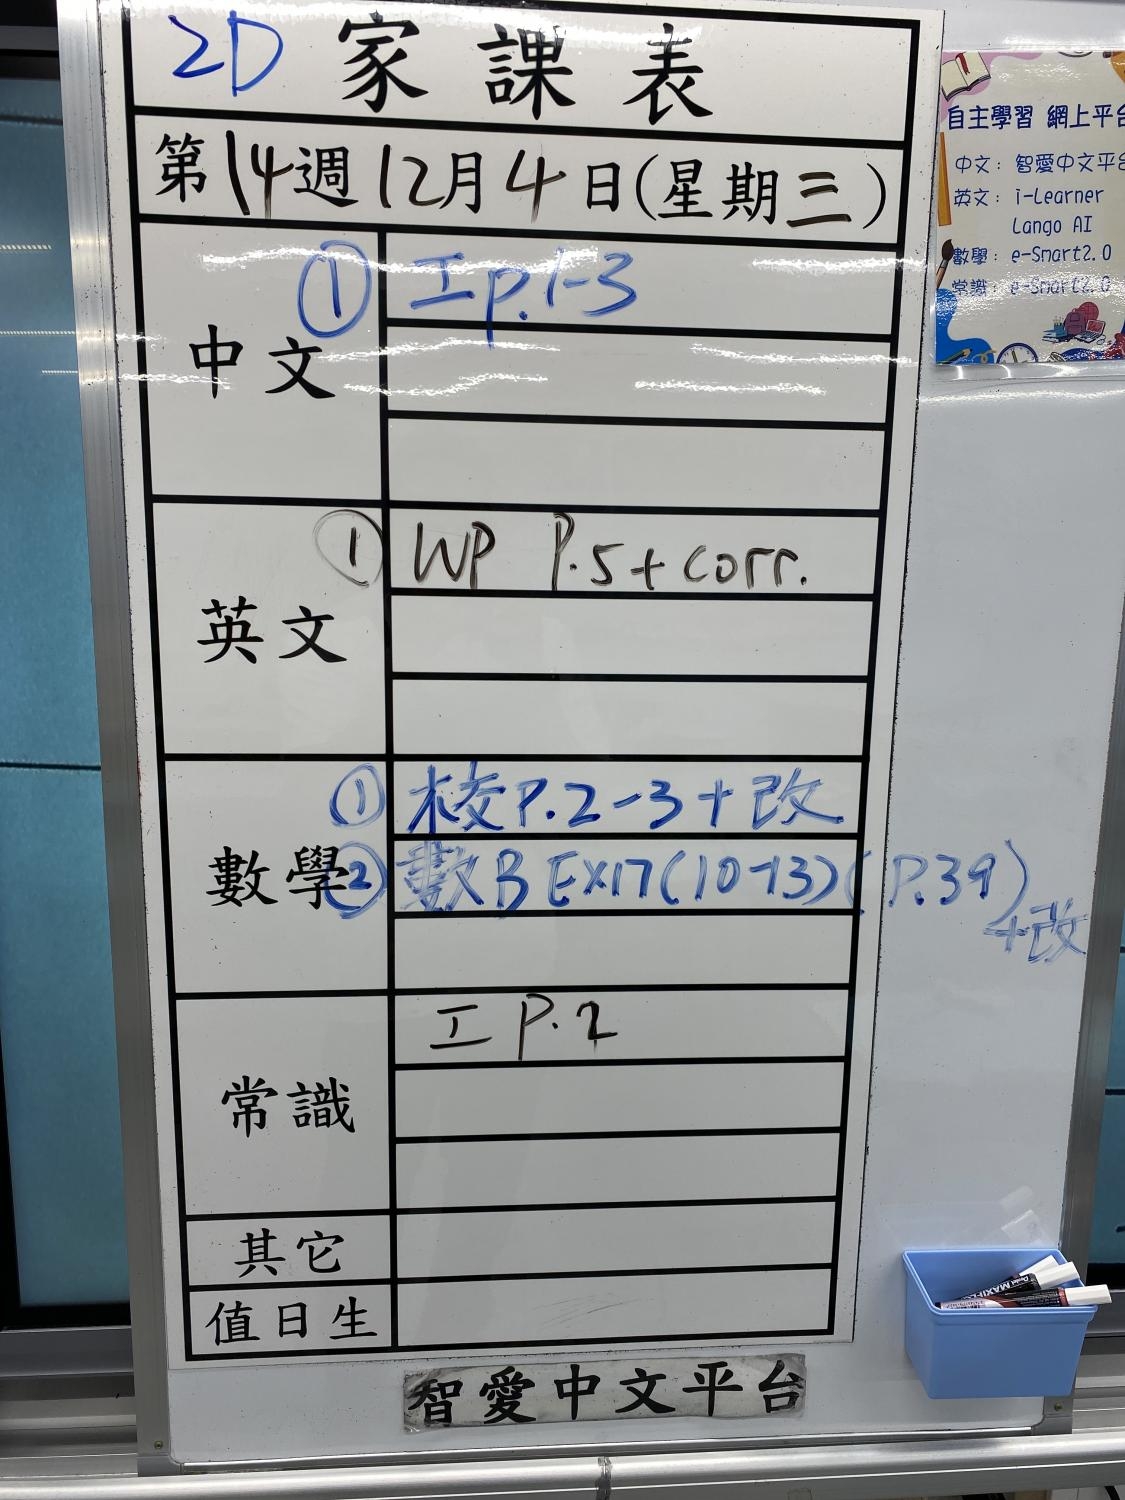 2D 家課表
第14週12月4日(星期三)
中文
① 工p.1-3
英文
① WP P.5+corr.
數學
① 校P.2-3+改
② 數B Ex17(10-13)(P.39)
+改
常識
工 P.2
其它
值日生
智愛中文平台
自主學習 網上平台
中文: 智愛中文平台
英文: i-Learner
Lango AI
數學: e-Smart2.0
常識: e-Smart2.0
Pentel MAXIFLO